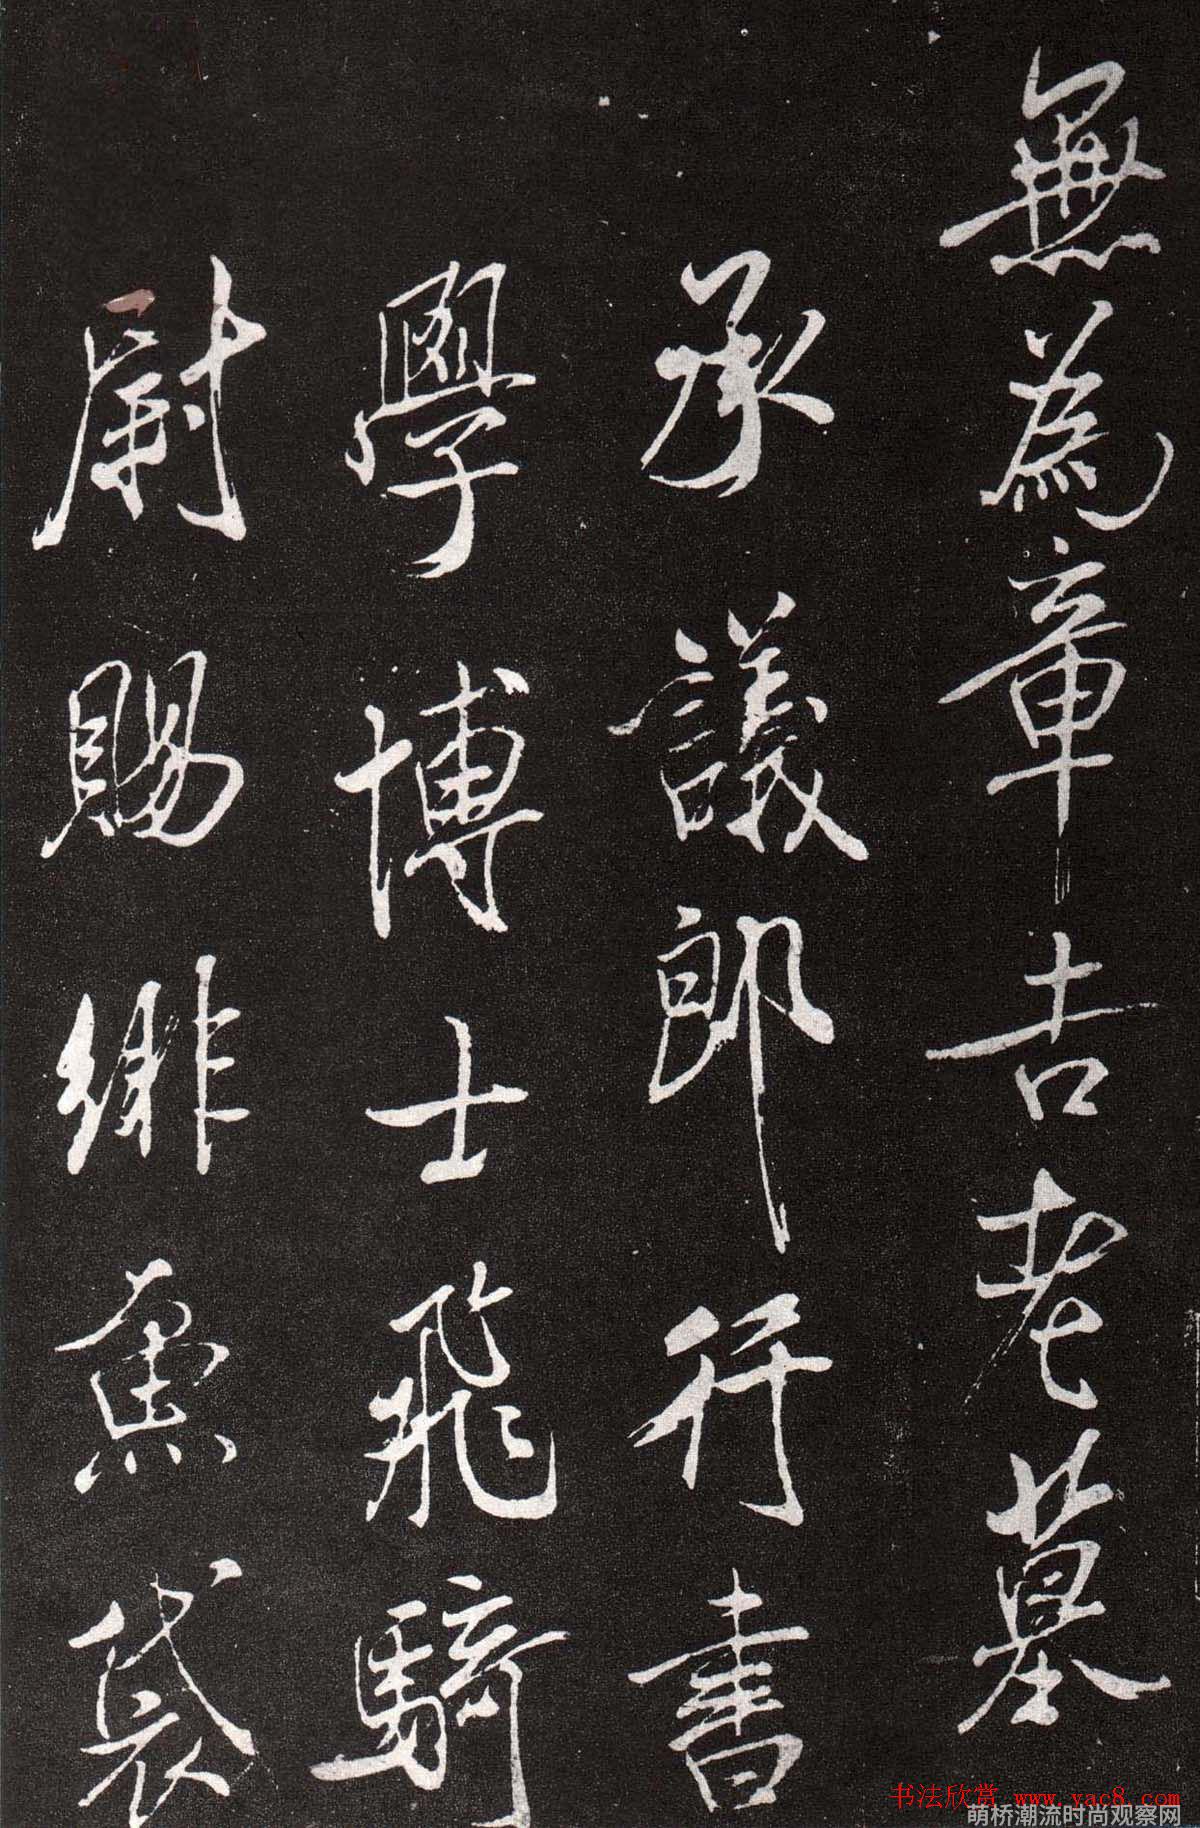 無為章吉老墓
承議郎行書
學博士飛騎
尉賜緋魚袋
书法欣赏 www.yac8.com
萌桥潮流时尚观察网